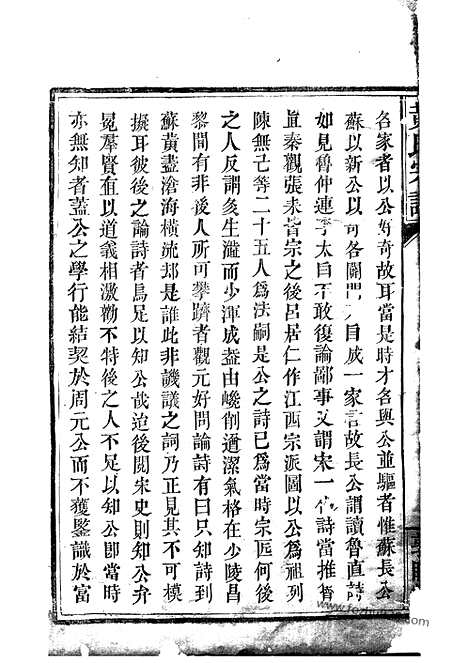 名家者以公好奇故耳當是時才名與公並驅者惟蘇長公
蘇以新公以奇各闢門目成一家言故長公謂讀魯直詩
如見魯仲連李太白不敢復論鄙事又謂宋一代詩當推魯
直秦觀張耒皆宗之後呂居仁作江西宗派圖以公爲祖列
陳無己等二十五人爲法嗣是公之詩已爲當時宗匠何後
之人反謂多生澁而少渾成盖由巉削遒潔氣格在少陵昌
黎間有非後人所可攀躋者觀元好問論詩有曰只知詩到
蘇黃盡滄海橫流却是誰此非譏議之詞乃正見其不可模
擬耳彼後之論詩者烏足以知公哉迨後閱宋史則知公弁
冕羣賢直以道義相激勸不特後之人不足以知公即當時
亦無知者蓋公之學行能結契於周元公而不獲鑒識於富
黃氏宗譜